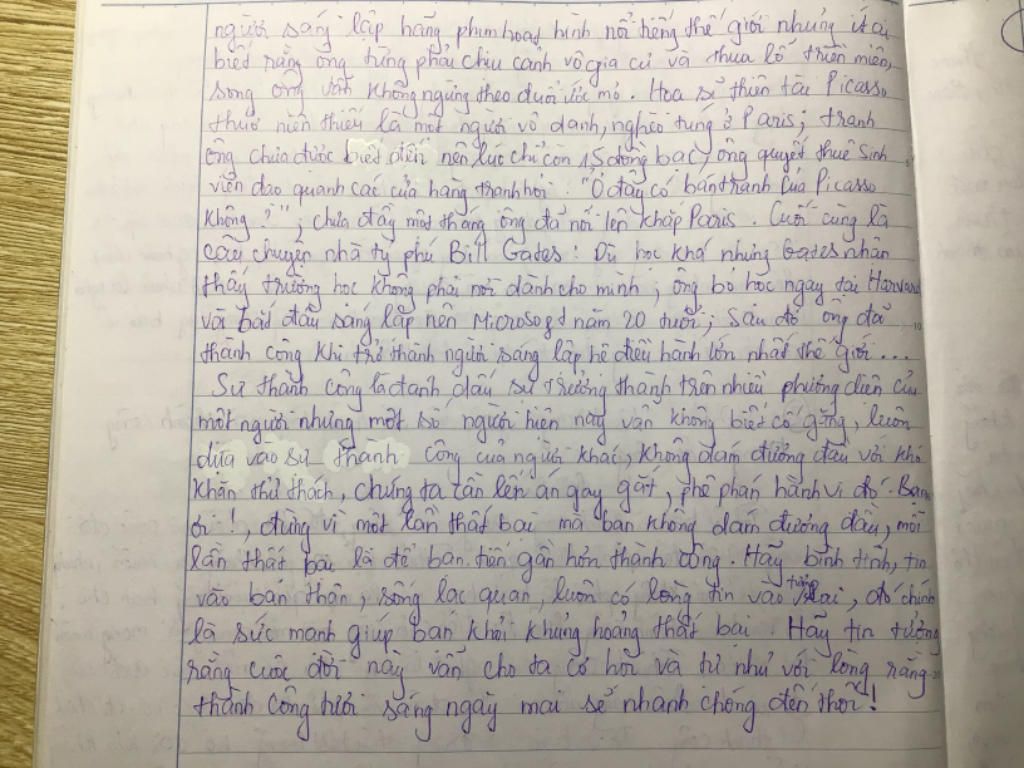 người sáng lập hãng phim hoạt hình nổi tiếng thế giới nhưng ít ai
biết rằng ông từng phải chịu cảnh vô gia cư và thua lỗ triền miên,
song ông vẫn không ngừng theo đuổi ước mơ. Họa sĩ thiên tài Picasso
thuở niên thiếu là một người vô danh, nghèo túng ở Paris; tranh
ông chưa được biết đến nên lúc chỉ còn 15 đồng bạc, ông quyết thuê sinh
viên dạo quanh các cửa hàng tranh hỏi: "Ở đây có bán tranh của Picasso
không?"; chưa đầy một tháng ông đã nổi lên khắp Paris. Cuối cùng là
câu chuyện nhà tỷ phú Bill Gates: Dù học khá nhưng Gates nhận
thấy trường học không phải nơi dành cho mình; ông bỏ học ngay tại Harvard
và bắt đầu sáng lập nên Microsogd năm 20 tuổi; sau đó ông đã
thành công khi trở thành người sáng lập hệ điều hành lớn nhất thế giới...
Sự thành công là đánh dấu sự trưởng thành trên nhiều phương diện của
một người nhưng một số người hiện nay vẫn không biết cố gắng, luôn
dựa vào sự thành công của người khác, không dám đương đầu với khó
khăn thử thách, chúng ta cần lên án gay gắt, phê phán hành vi đó. Bạn
ơi!, đừng vì một lần thất bại mà bạn không dám đương đầu, mỗi
lần thất bại là để bạn tiến gần hơn thành công. Hãy bình tĩnh, tin
vào bản thân, sống lạc quan, luôn có lòng tin vào tương lai, đó chính
là sức mạnh giúp bạn khỏi khủng hoảng thất bại. Hãy tin tưởng
rằng cuộc đời này vẫn cho ta cơ hội và tự nhủ với lòng rằng
thành công tươi sáng ngày mai sẽ nhanh chóng đến thôi!